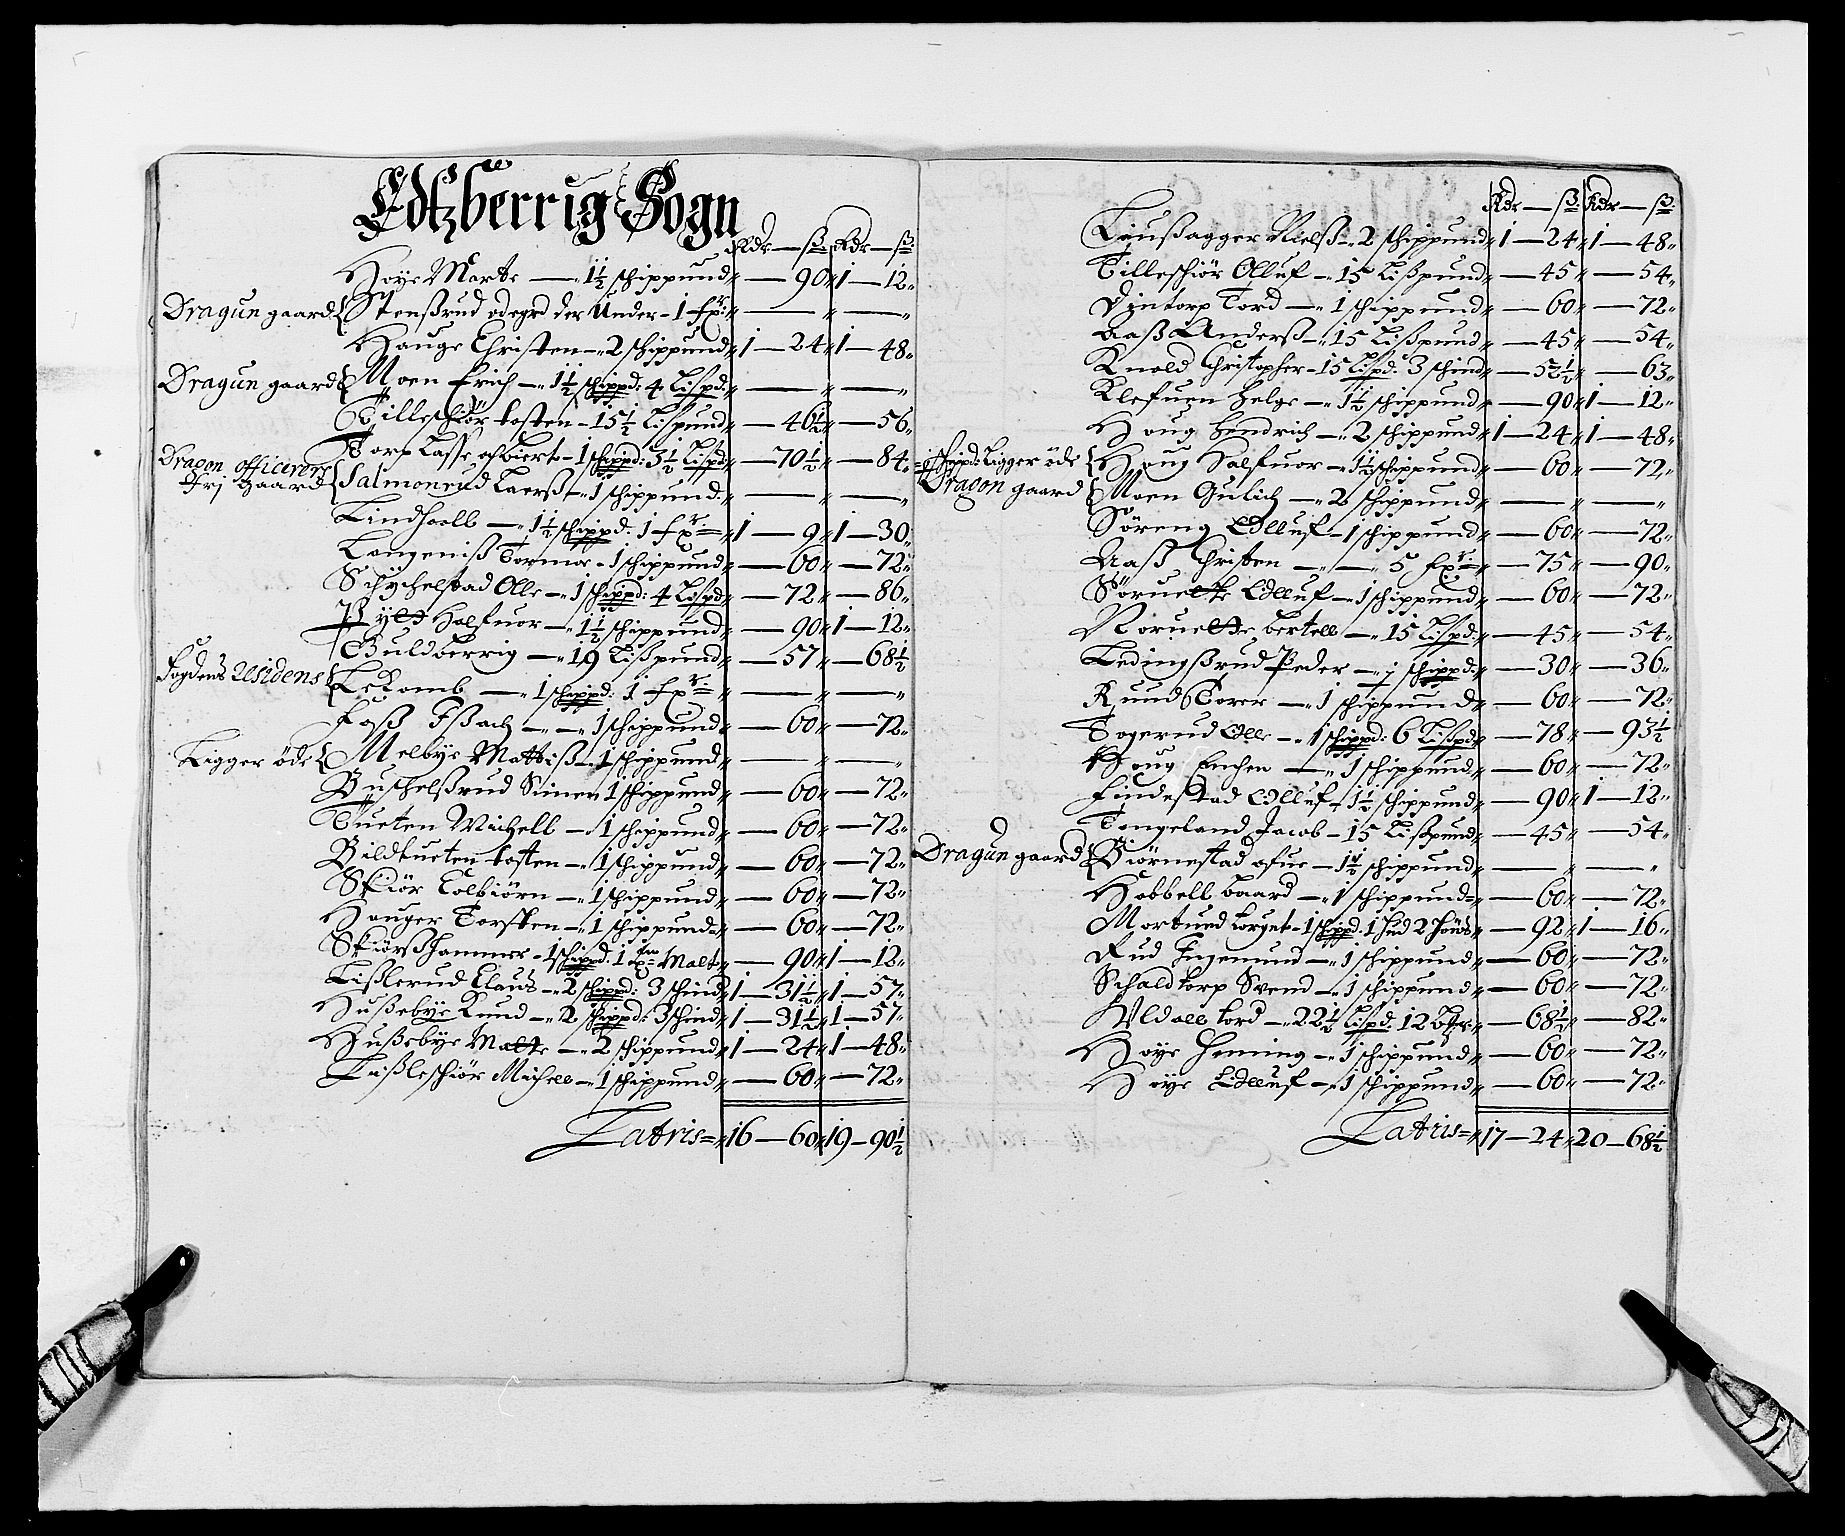 Edtzberrig Sogn
Rdr — ß Rdr — ß
Høye Marte — 1½ schippund — 90 1 — 12
Dragun gaard { Stenßrud ødegrd der Under - 1 fxr — —
Hauge Christen - 2 schippund 1 — 24 1 — 48
Dragun gaard { Moen Erich - 1½ schippd: 4 Lispd — —
Tilleschiør tosten - 15½ Lispund — 46½ — 56
Torp Lasse - 1 schippd: 3½ Lispd — 70½ — 84
Dragon officerers
frj gaard { Salmonrud Laerß - 1 schippund — —
Lindhoell - 1½ schippd: 1 fxr 1 — 9 1 — 30
Langeniß Tormor - 1 schippund — 60 — 72
Schÿchelstad Olle - 1 schippd: 4 Lispd — 72 — 86
Halfuor - 1½ schippund — 90 1 — 12
Guldberrig - 19 Lißpund — 57 — 68½
fogdens Residens { LeKomb - 1 schippd: 1 fxr — —
foß Ißach - 1 schippund — 60 — 72
Ligger øde { Melbye Mattiß - 1 schippund — —
Buschelßrud Simen 1 schippund — 60 — 72
Tueten Michell - 1 schippund — 60 — 72
Bildtueten tosten - 1 schippund — 60 — 72
Skiør Tolbiørn - 1 schippund — 60 — 72
Hauger Torsten - 1 schippund — 60 — 72
Skiørßhammer - 1 schippd: 1 Malt — 90 1 — 12
Lißlerud Claus - 2 schippd: 3 schind 1 — 31½ 1 — 57
Hußebye Knud - 2 schippd: 3 schind 1 — 31½ 1 — 57
Hußebye Malte - 2 schippund 1 — 24 1 — 48
Lißleschiør Michell - 1 schippund — 60 — 72
Latris = 16 — 60 19 — 90½
Rdr — ß Rdr — ß
Laußagger Nielß - 2 schippund 1 — 24 1 — 48
Tilleschiør Olluf - 15 Lißpund — 45 — 54
Dintorp Tord - 1 schippund — 60 — 72
Aaß Anderß - 15 Lißpund — 45 — 54
Knold Christopher - 15 Lispd: 3 schind — 52½ — 63
Klefuen Helge - 1½ schippund — 90 1 — 12
Houg Hendrich - 2 schippund 1 — 24 1 — 48
½ schipd: Ligger øde { Houg Halfuor - 1½ schippund — 60 — 72
Dragon gaard { Moen Gulich - 2 schippund — —
Søreng Olluf - 1 schippund — 60 — 72
Aaß Christen — 5 fxr — 75 — 90
Søruelte Olluf - 1 schippund — 60 — 72
Noruelte bertell - 15 Lispd: — 45 — 54
Ledingßrud Peder - ½ schippd: — 30 — 36
Rund Torer - 1 schippund — 60 — 72
Togerud Olle - 1 schippd: 6 Lißpd — 78 — 93½
Houg Enchen - 1 schippund — 60 — 72
Findestad Olluf - 1½ schippund — 90 1 — 12
Tengeland Jacob - 15 Lißpund — 45 — 54
Dragun gaard { Biørnestad - 1½ schippund — —
Hobbell baard - 1 schippund — 60 — 72
Mortued torget - 1 schippd: 1 hud 2 — 92 1 — 16
Rud Ingemund - 1 schippund — 60 — 72
Schaldtorp Svend - 1 schippund — 60 — 72
Uldall tord - 22½ Lispd: 12 — 68½ — 82
Høye Heming - 1 schippund — 60 — 72
Høye Olluf - 1 schippund — 60 — 72
Latris = 17 — 24 20 — 68½